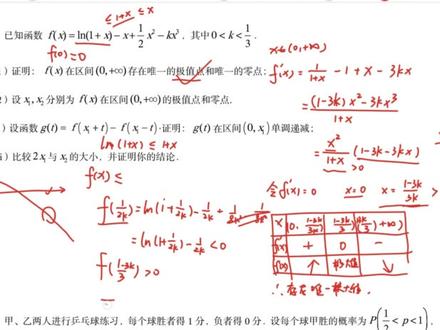 ≤ 1+x ≤ x
已知函数 f(x)=ln(1+x)−x+\frac{1}{2}x²−kx³，其中0<k<\frac{1}{3}．
f(0)=0
x∈(0,+∞)
）证明：f(x)在区间(0,+∞)存在唯一的极值点和唯一的零点；
f'(x)=\frac{1}{1+x}−1+x−3kx
）设 x₁,x₂分别为 f(x)在区间(0,+∞)的极值点和零点．
=\frac{(1-3k)x²−3kx³}{1+x}
）设函数g(t)=f(x₁+t)−f(x₁−t)·证明：g(t)在区间(0,x₁)单调递减；
ln(1+x)≤1+x
=\frac{x²}{1+x}(1−3k−3kx)
>0
）比较2x₁与x₂的大小，并证明你的结论．
f(x)≤
令f'(x)=0 x=0 x=\frac{1-3k}{3k}>
f(\frac{1}{2k})=ln(1+\frac{1}{2k})−\frac{1}{2k}+
=ln(1+\frac{1}{2k})−\frac{1}{2k}<0
f(\frac{1-3k}{3})>0
f'(x) + 0 −
f(x) ↑ 极大值 ↓
∴存在唯一极大值．
甲、乙两人进行乒乓球练习，每个球胜者得1分，负者得0分．设每个球甲胜的概率为P(\frac{1}{2}<p<1)，